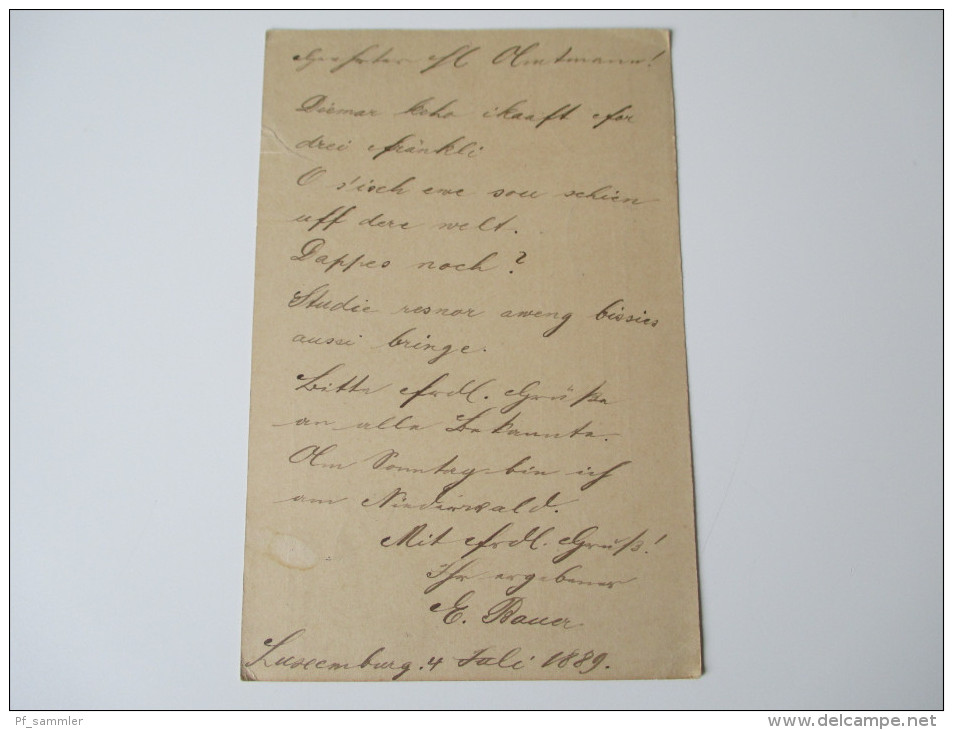 Geehrter H Amtmann!
Diemar keho ikaaft for
drei fränkli
O s'isch ewe sou schien
uff dere welt.
Dappes noch?
Studie resnor aweng bissies
aussi bringe.
Bitte frdl. Grüße
an alle Bekannte.
Am Sonntag bin ich
am Niederwald.
Mit frdl. Gruß!
Ihr ergebener
E. Bauer
Luxemburg. 4 Juli 1889.
Pf_sammler
www.delcampe.net